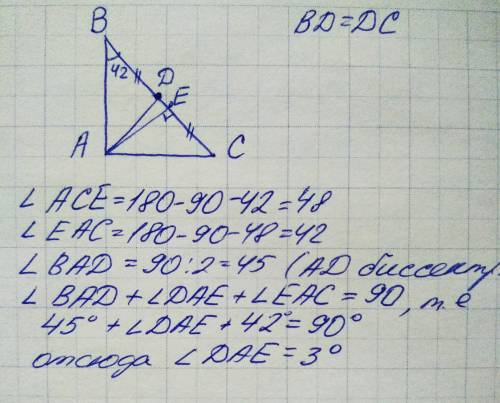 B
BD=DC
42
D
E
A
C
∠ ACE=180-90-42=48
∠ EAC=180-90-48=42
∠ BAD =90:2=45 (AD биссектр.
∠ BAD+∠DAE+∠EAC=90, т.е
45°+∠DAE+42°=90°
отсюда ∠ DAE=3°